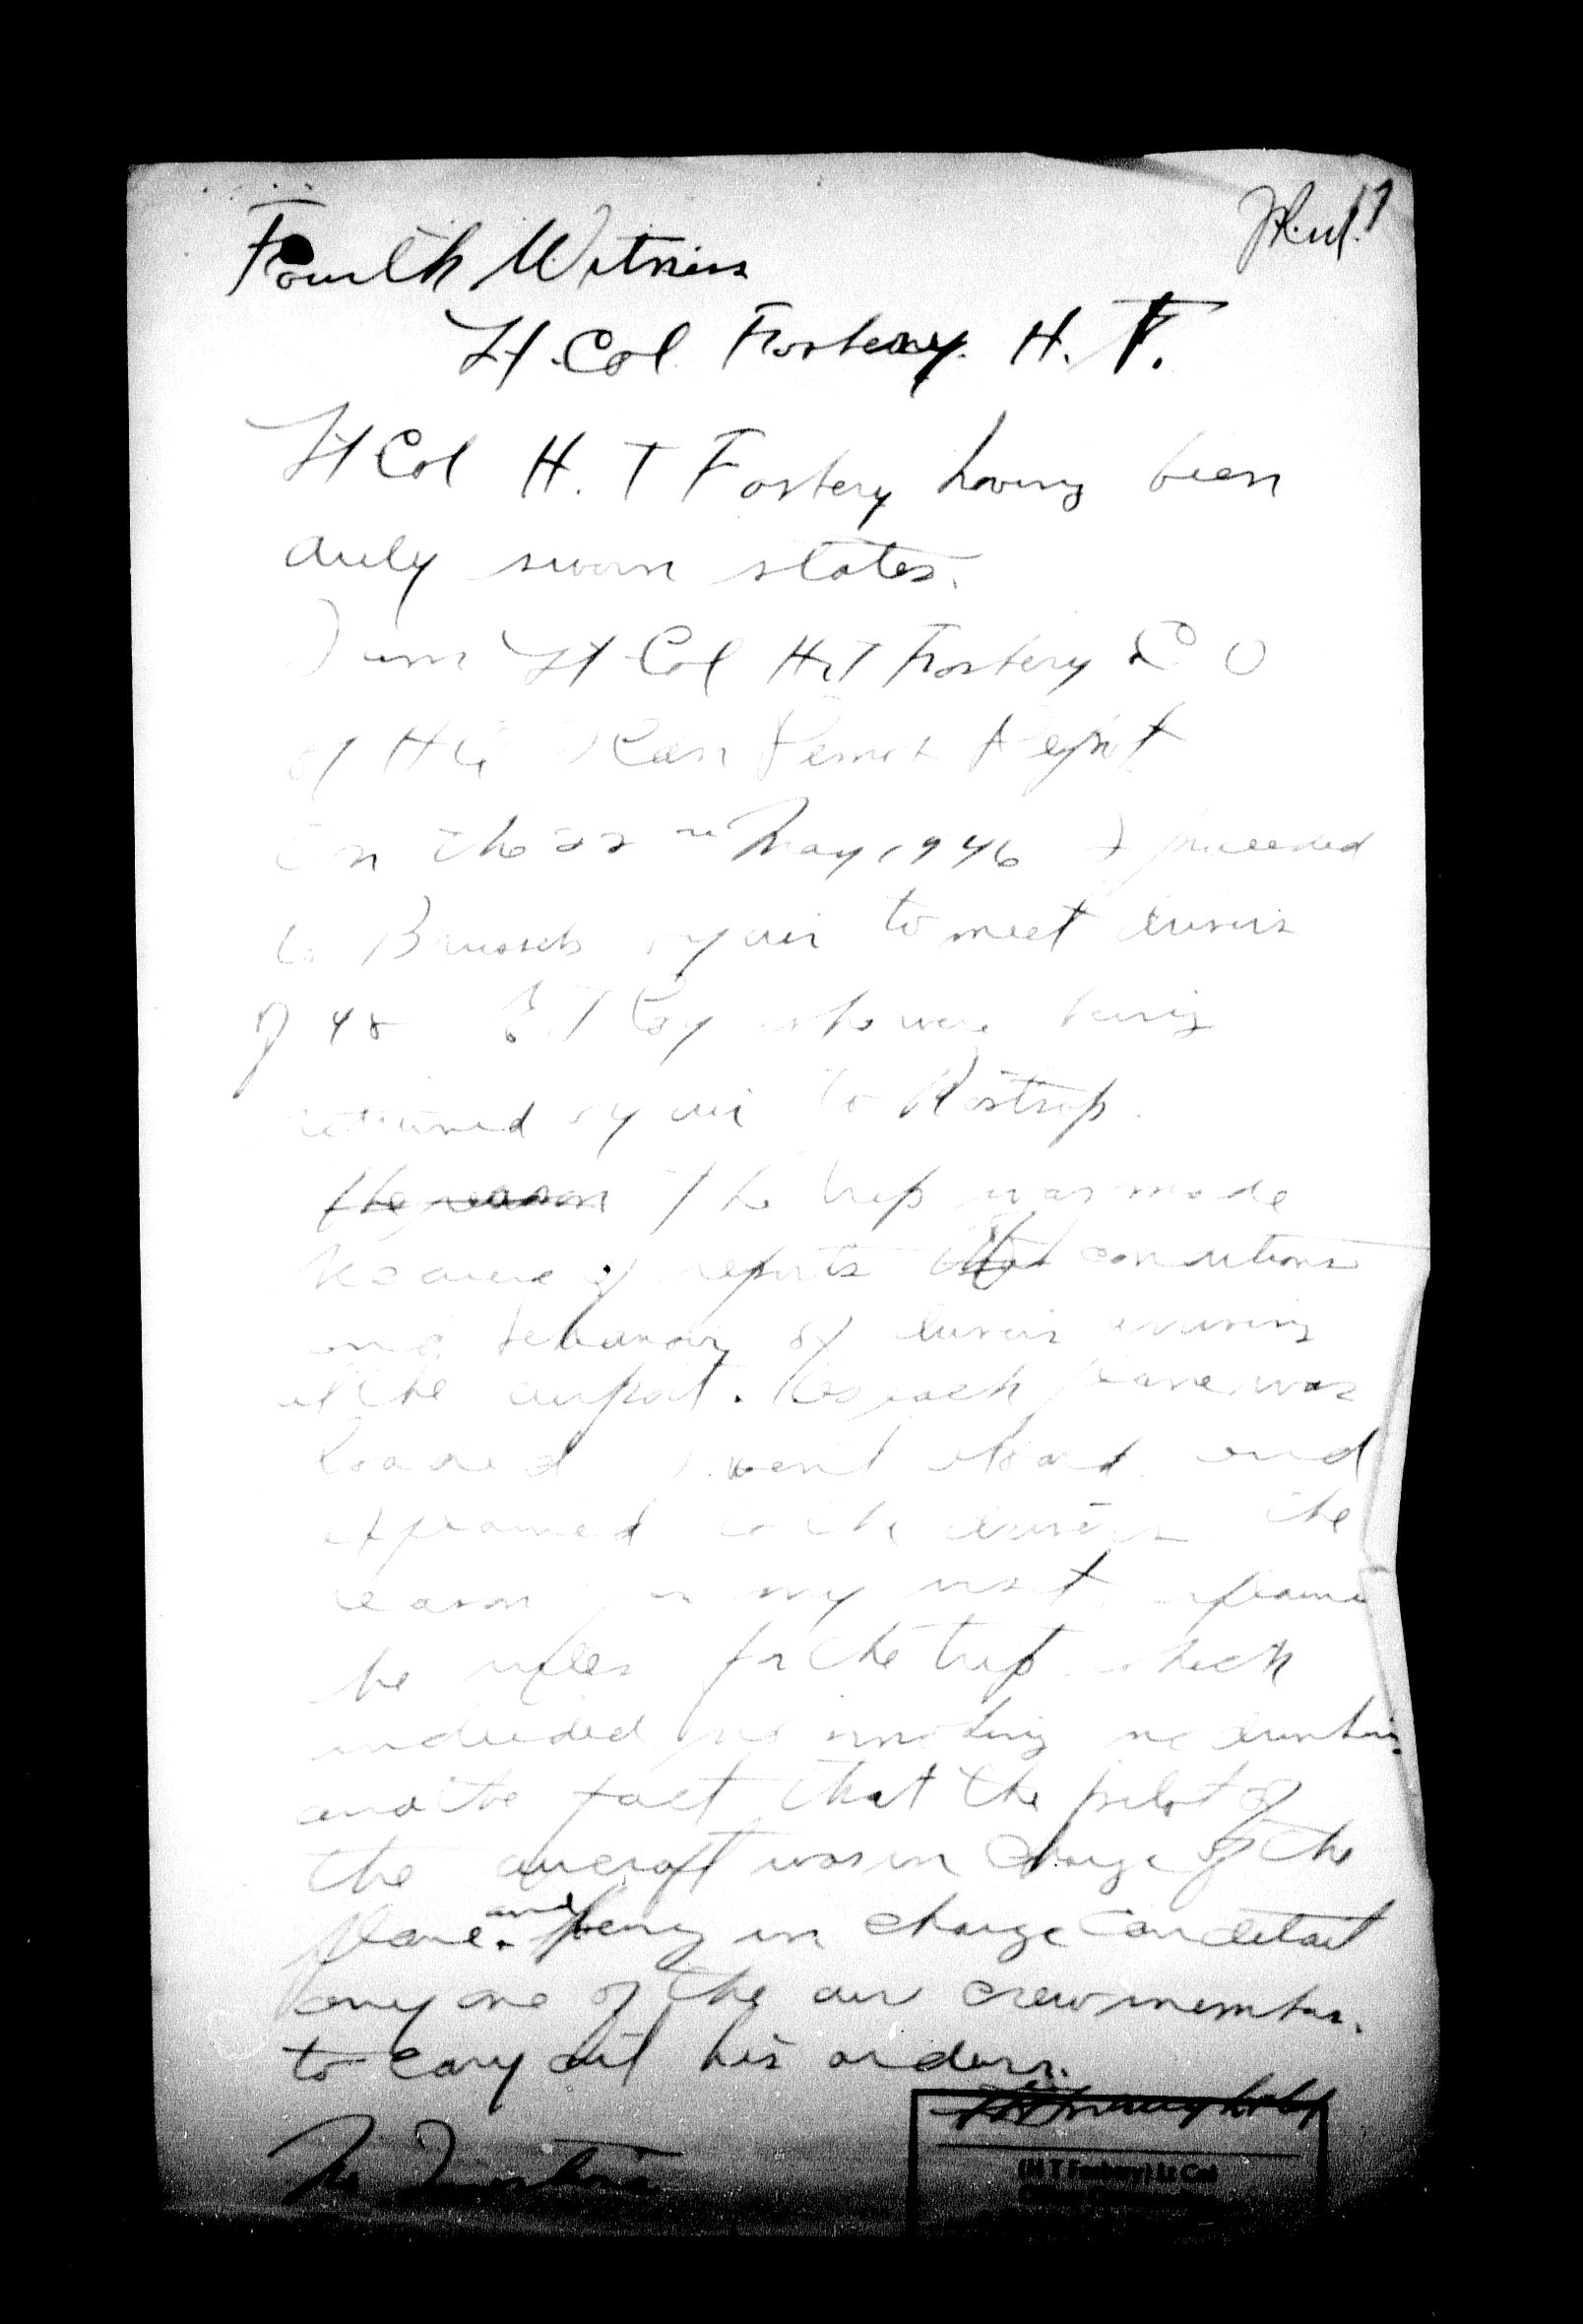 Fourth Witness
Lt. Col. Fosbery. H. T.
Lt Col H. T Fosbery having been
duly sworn states.
I am Lt Col H.T Fosbery C O
of HQ Cdn Depot
On the 22nd May 1946 I proceeded
to Brussels by air to meet drivers
of 48 Coy who were being
returned by air to Rostrup.
The reason The trip was made
because of reports of conditions
and behaviour of drivers arriving
at the airport. As each plane was
loaded I went aboard and
explained to the drivers the
reason for my visit, explained
the rules for the trip which
included no smoking no drinking
and the fact that the pilot of
the aircraft was in charge of the
plane. and being in charge can detail
any one of the air crew members.
to cary out his orders.
No Questions.
(H T Fosbery) Lt Col